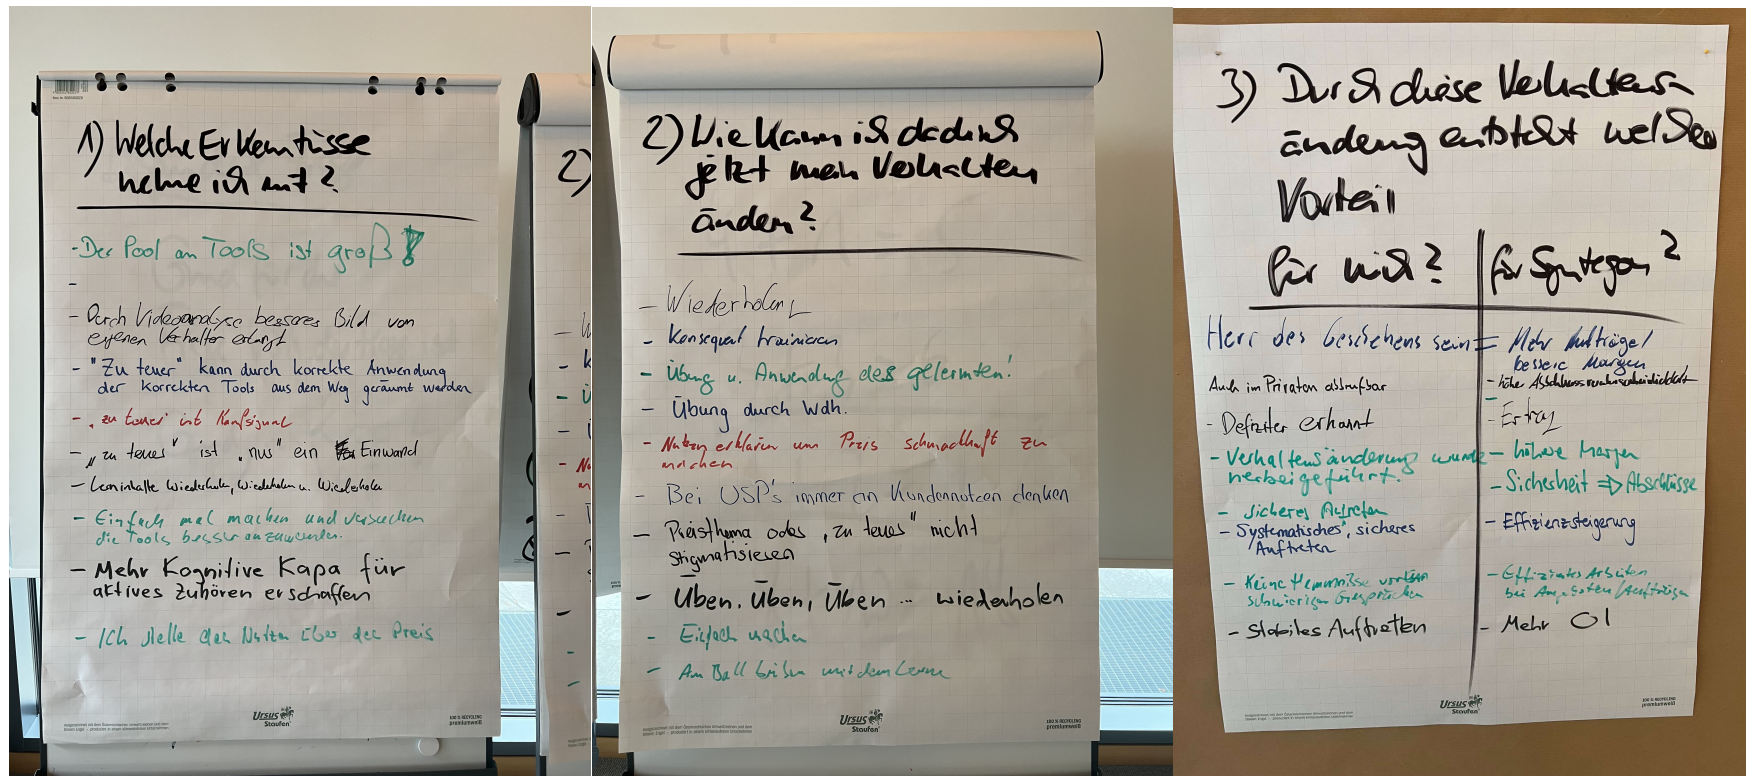 1) Welche Erkenntnisse
nehme ich mit?
- Der Pool an Tools ist groß!
-
- Durch Videoanalyse besseres Bild vom
eigenen Verhalten erlangt
- "Zu teuer" kann durch korrekte Anwendung
der korrekten Tools aus dem Weg geräumt werden
- "zu teuer" ist Kaufsignal
- "zu teuer" ist "nur" ein Einwand
- Lerninhalte Wiederholen, Wiederholen u. Wiederholen
- Einfach mal machen und versuchen
die Tools besser anzuwenden.
- Mehr Kognitive Kapa für
aktives Zuhören erschaffen
- Ich stelle den Nutzen über den Preis
Ursus
Staufen
100 % RECYCLING
premiumweiß
2)
2) Wie kann ich dadurch
jetzt mein Verhalten
ändern?
- Wiederholung
- Konsequent trainieren
- Übung u. Anwendung des gelernten!
- Übung durch Wdh.
- Nutzen erklären um Preis schmackhaft zu
machen
- Bei USP's immer an Kundennutzen denken
- Preisthema oder "zu teuer" nicht
stigmatisieren
- Üben, Üben, Üben ... wiederholen
- Einfach machen
- Am Ball bleiben mit dem Lernen
Ursus
Staufen
100 % RECYCLING
premiumweiß
3) Durch diese Verhaltens-
änderung entsteht welcher
Vorteil
für mich?
Herr des Geschehens sein
Auch im Privaten abrufbar
- Defiziter erkannt
- Verhaltensänderung wurde
herbeigeführt.
- sicheres Auftreten
- Systematisches, sicheres
Auftreten
- Keine Hemmnisse vor
schwierigen Gesprächen
- Stabiles Auftretten
für Syntegon?
= Mehr Aufträge/
bessere Margen
- höhe Abschlusswahrscheinlichkeit
-
- Ertrag
- höhere Margen
- Sicherheit => Abschlüsse
- Effizienzsteigerung
- Effizientes Arbeiten
bei Angeboten/Aufträgen
- Mehr OI
Ursus
Staufen
100 % RECYCLING
premiumweiß